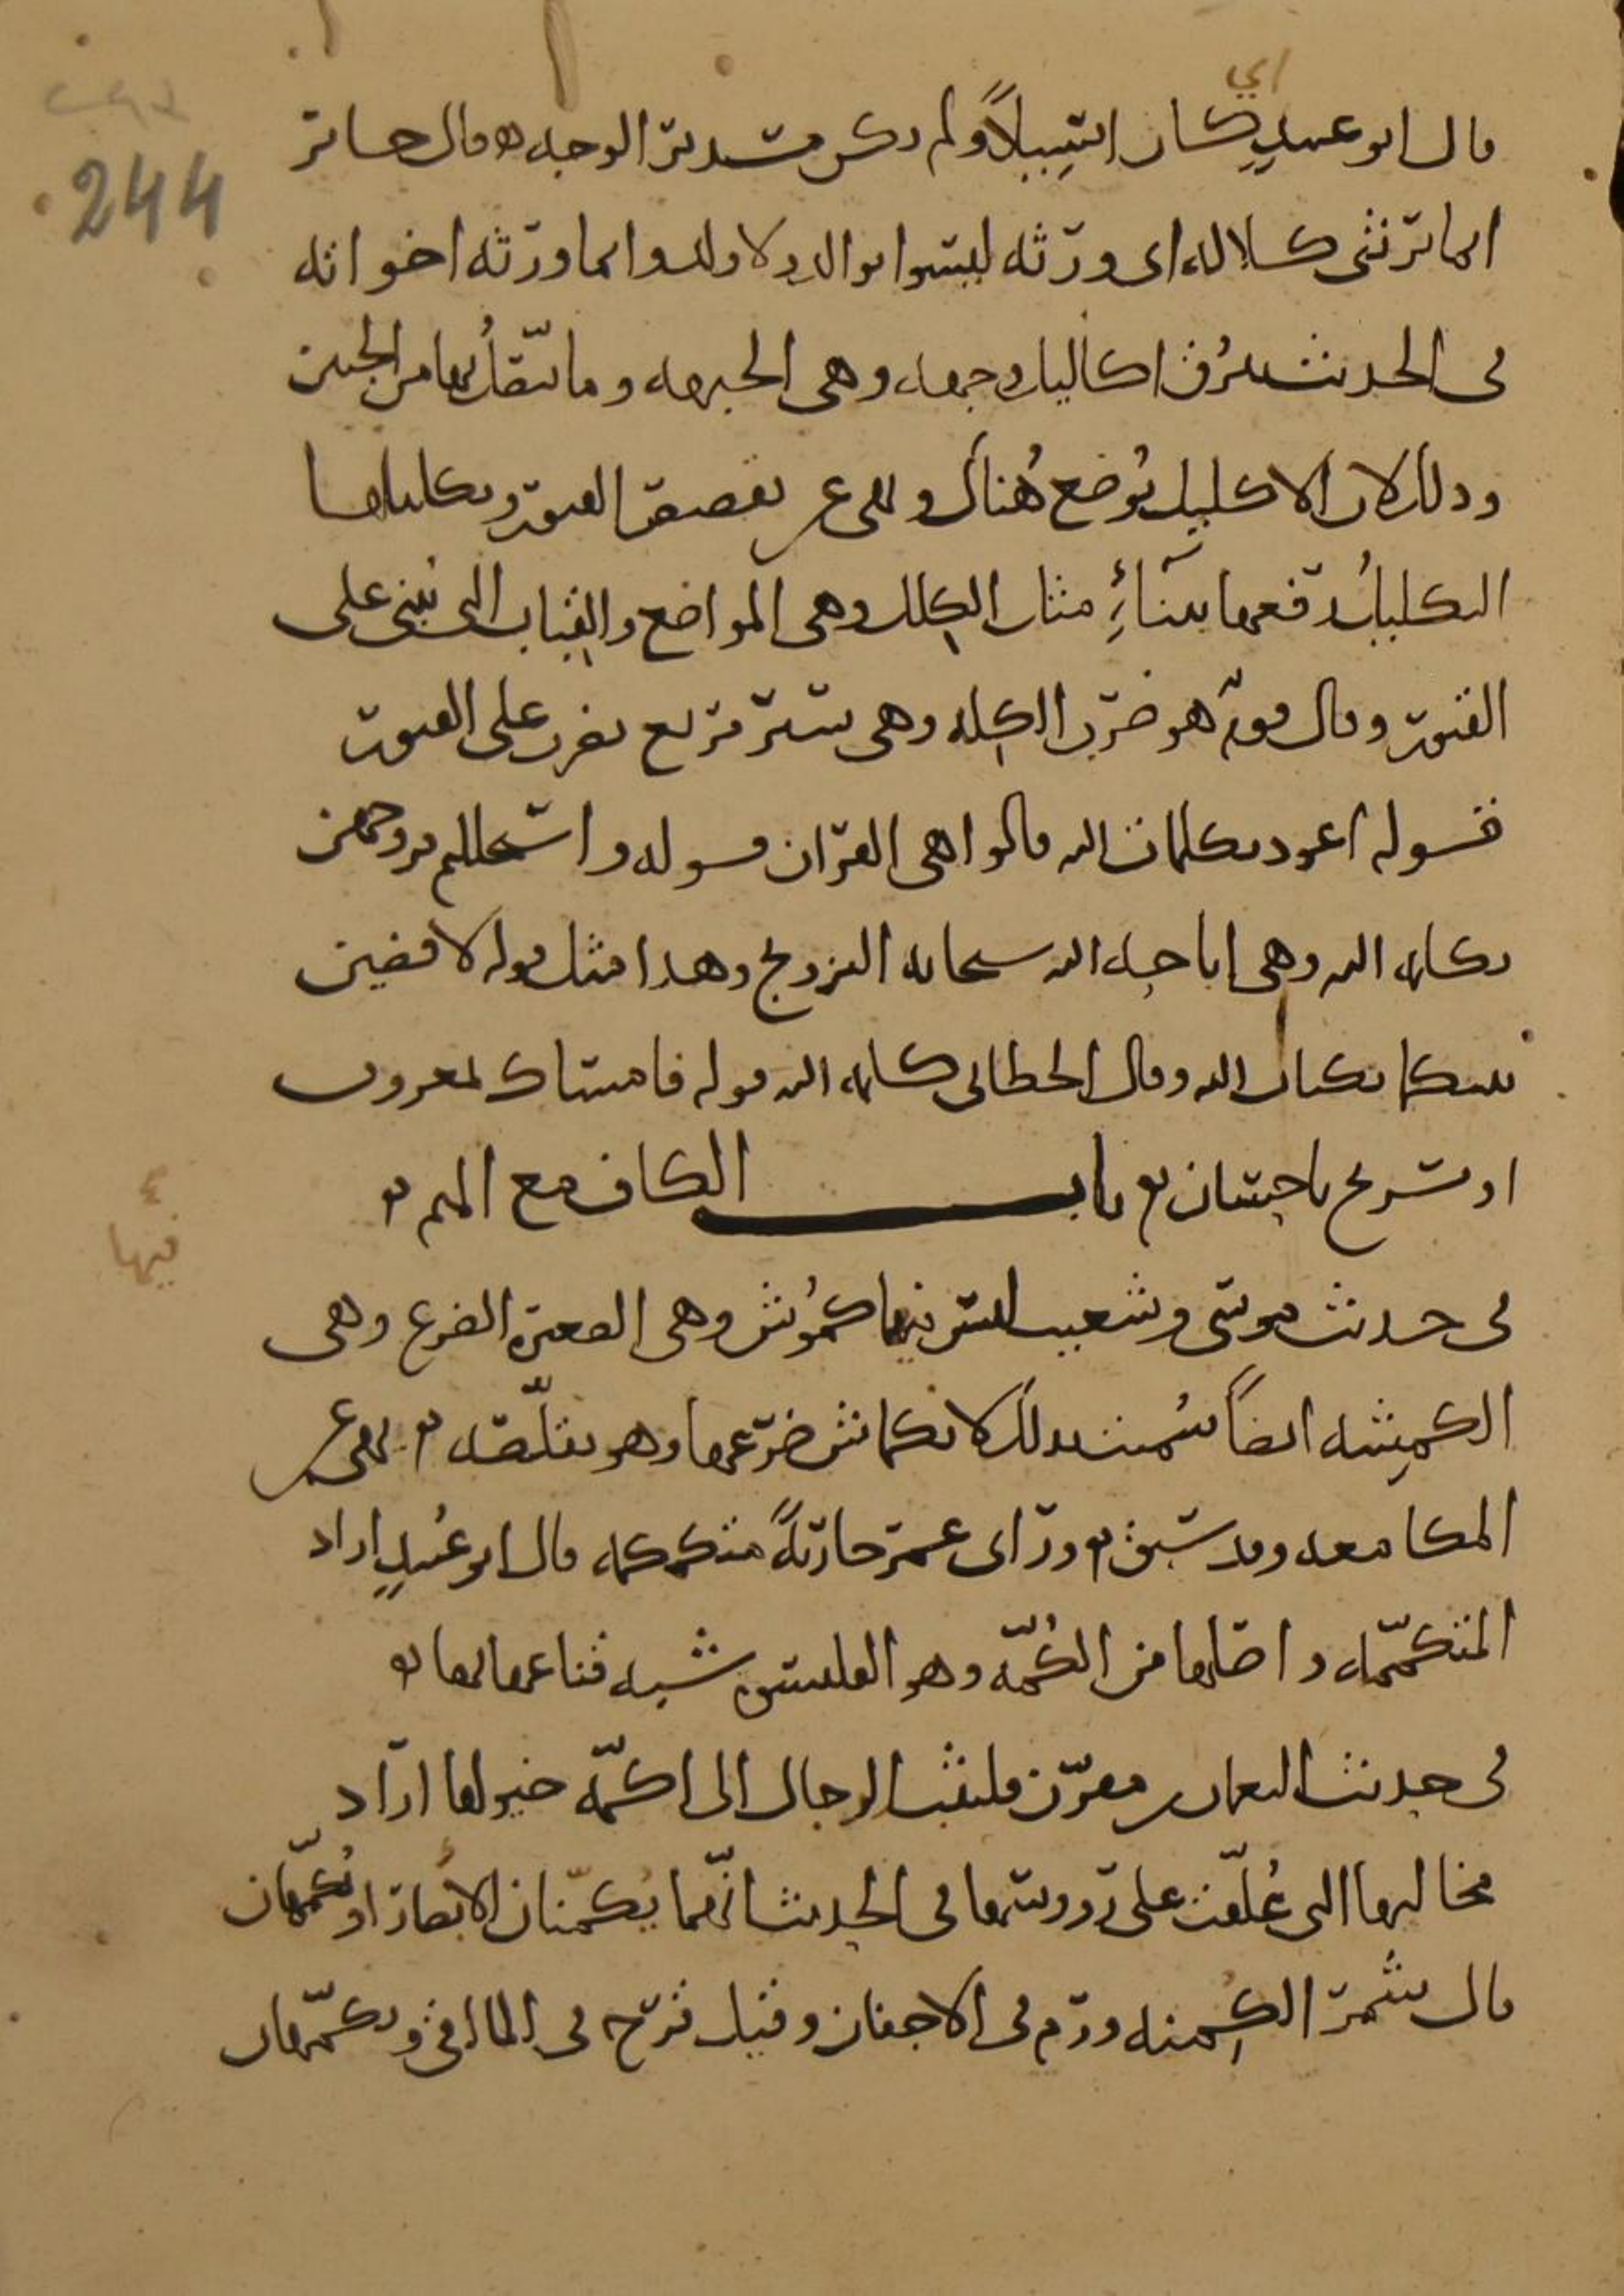 اي
قال ابو عبيدٍ كان اسِيلاً ولم يكن مستدير الوجه ه وقال جابر
انما يرثني كلاله اى ورثه ليسوا بوالدٍ ولا ولد وانما ورثه اخواته
244
فى الحديث تبرُق اكاليل وجهه وهى الجبهه وما يتّصلُ بها من الجبين
وذلك لان الاكليل يُوضع هُناك ونهى عن تقصيص القبور وتكليلها
التكليلُ رفعها ببنآءٍ مثل الكِلل وهى الصوامع والقِباب التى تُبنى على
القبور وقال قومٌ هو ضرب الكِله وهى ستر مربع يضرب على القبور
قوله اعوذ بكلمات الله قالوا هى القران قوله واستحللتم فروجهن
بكلمه الله وهى اباحه الله سبحانه التزويج وهذا مثل قوله لاقضين
بينكما بكتاب الله وقال الخطابى كلمه الله قوله فامساك بمعروف
او تسريح باحسان ه باب الكاف مع الميم ه
فيها
فى حديث موسى وشعيب ليس فيها كمُوش وهى الصغيرة الضرع وهى
الكمِيشه ايضاً سُميت بذلك لانكماش ضرعها وهو تقلّصه ه نهى عن
المكامعه وقد سبق ه وراى عمر جاريةً متكمكمه قال ابو عُبيدٍ اراد
المتكمّمه واصلها من الكُمّه وهو القلنسوه شبه قناعها بها ه
فى حديث النعمان بن مقرّن فليثب الرجال الى اكمّه خيولها اراد
مخاليها التى عُلّقت على رووسها فى الحديث انّهما يُكمّنان الابصار او يُكمّهان
قال شمر الكُمنه ورم فى الاجفان وقيل قرح فى الماٰقى ويكمّهان